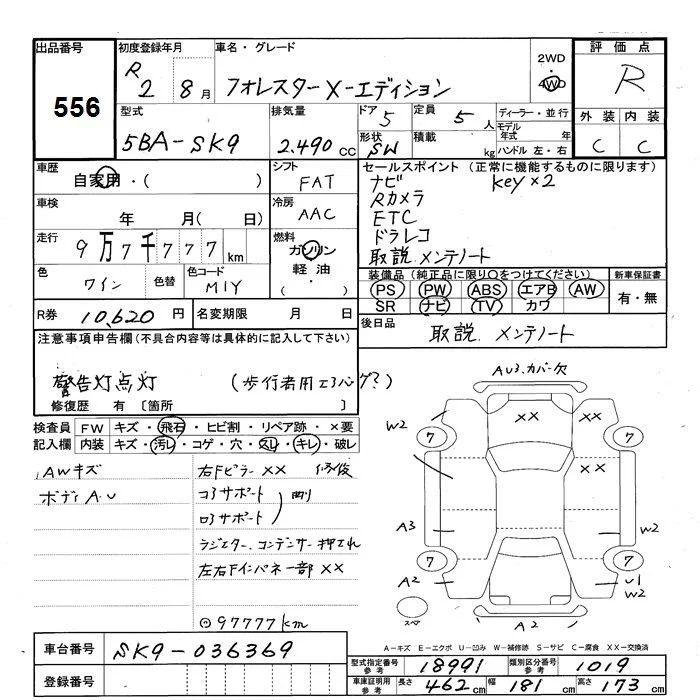 出品番号
556
初度登録年月
R 2 8月
車名・グレード
フォレスター X-エディション
2WD
・
4WD
評価点
R
外装 内装
C C
型式
5BA-SK9
排気量
2.490 cc
ドア 5
形状 SW
定員 5 人
積載 kg
ディーラー・並行
モデル年式 年
ハンドル 左・右
車歴
自家用・( )
シフト
FAT
車検
年 月( 日)
冷房
AAC
走行
9万7千777 km
燃料
ガソリン
軽油
・
( )
色
ワイン
色替
色コード
M1Y
セールスポイント (正常に機能するものに限ります)
ナビ key×2
Rカメラ
ETC
ドラレコ
取説 メンテノート
装備品 (純正品に限り○をつけてください)
PS PW ABS エアB AW
SR ナビ TV カワ
新車保証書
有・無
R券 10,620 円
名変期限 月 日
後日品
取説 メンテノート
注意事項申告欄(不具合内容等は具体的に記入して下さい)
警告灯点灯 (歩行者用エアバッグ?)
修復歴 有 〔箇所 〕
検査員 FW キズ・飛石・ヒビ割・リペア跡・×要
記入欄 内装 キズ・汚レ・コゲ・穴・スレ・キレ・破レ
AWキズ
ボディA.U
右Fピラー ×× 修復
コアサポート
ロアサポート
ラジエター、コンデンサー押され
左右Fインパネ一部 ××
◎97777km
AU3.カバー欠
W2
××
××
7
7
7
7
A3
W2
A2
U1
W2
スペア
A2
A-キズ E-エクボ U-凹み W-補修跡 S-サビ C-腐食 XX-交換済
車台番号
SK9-036369
登録番号
型式指定番号 参考 18991
類別区分番号 参考 1019
車庫証明用 参考 長さ 462 cm 幅 181 cm 高さ 173 cm